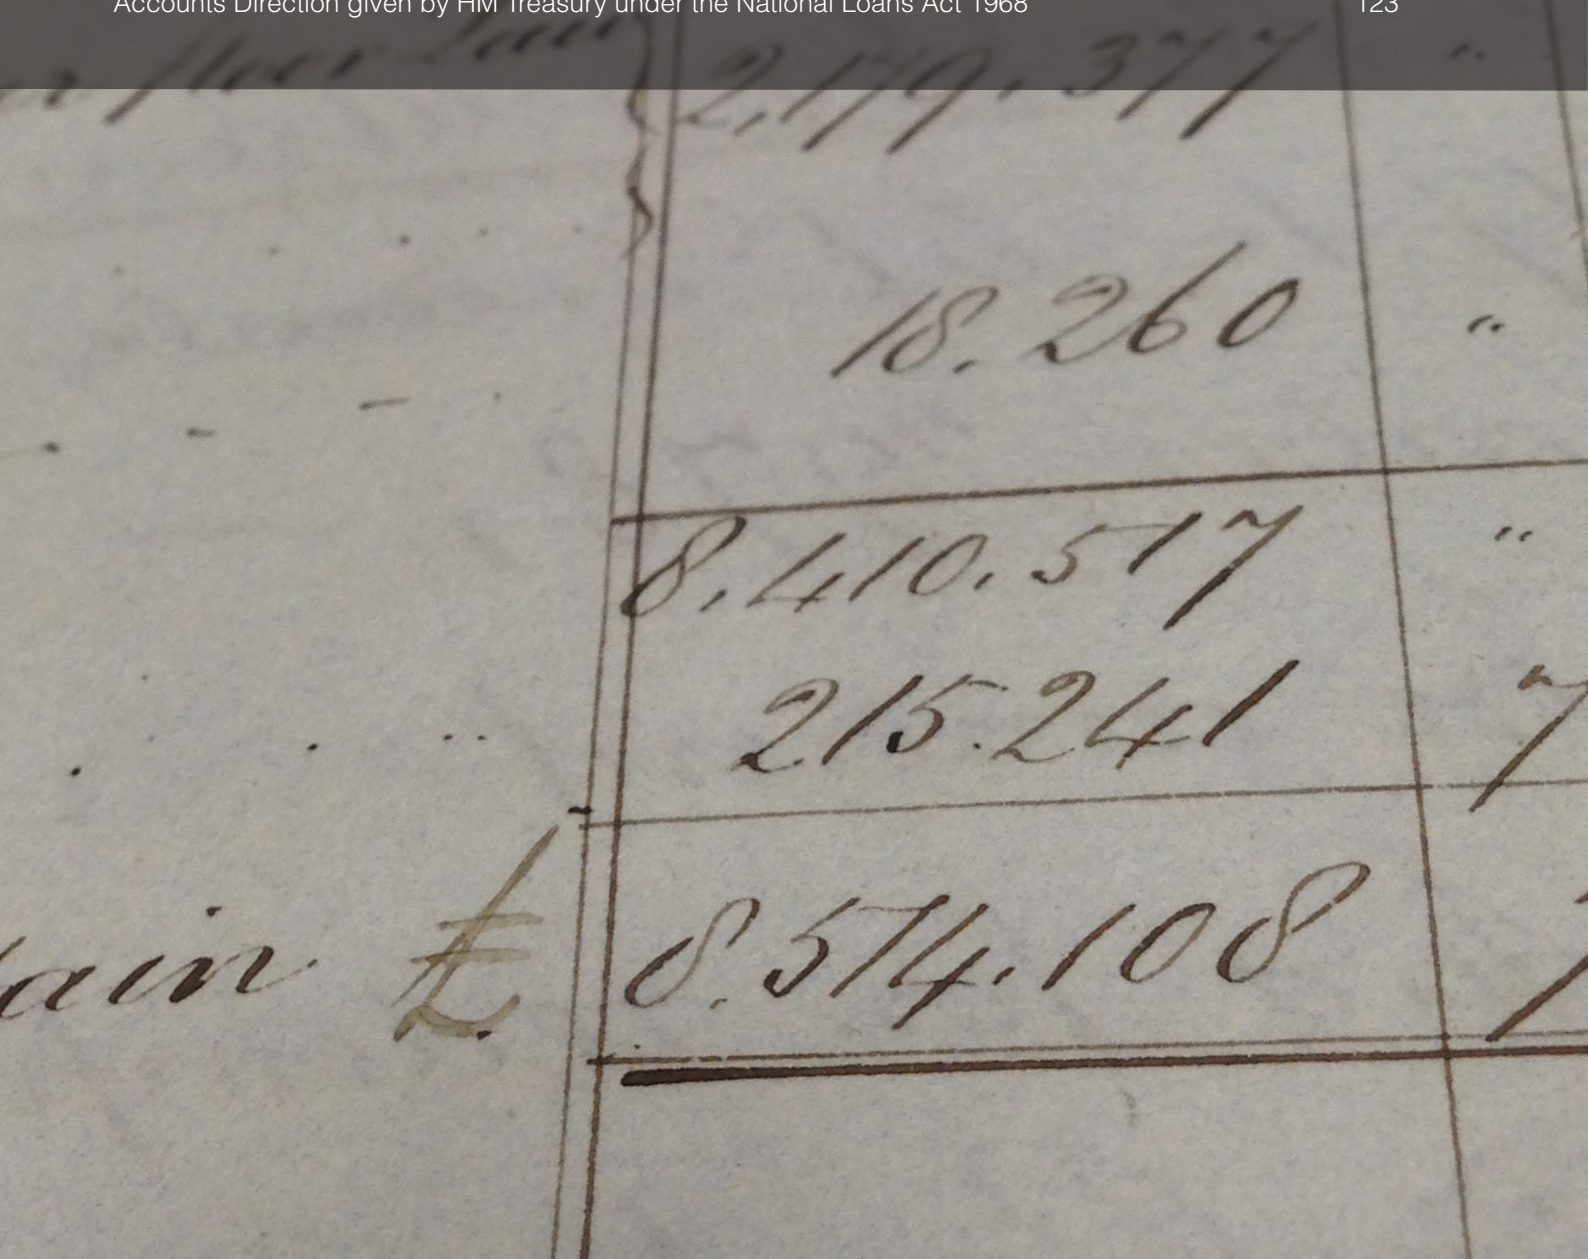 Accounts Direction given by HM Treasury under the National Loans Act 1968 123
2,179.377 "
18.260 "
8.410.517 "
215.241 7
tain £ 8.574.108 7